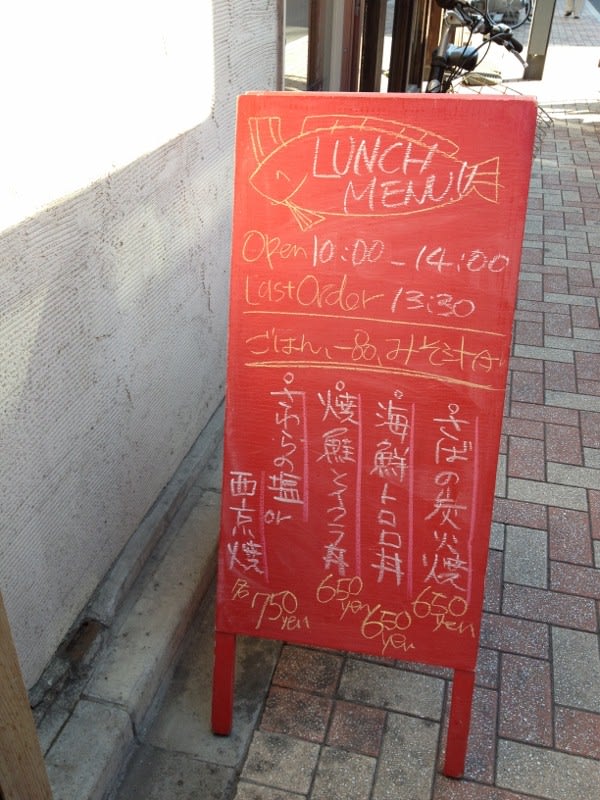 LUNCH
MENU!!
Open 10:00-14:00
Last Order 13:30
ごはん、一品、みそ汁付
さばの炭火焼
650 yen
海鮮トロロ丼
650 yen
焼鮭とイクラ丼
650 yen
さわらの塩 or
西京焼
750 yen